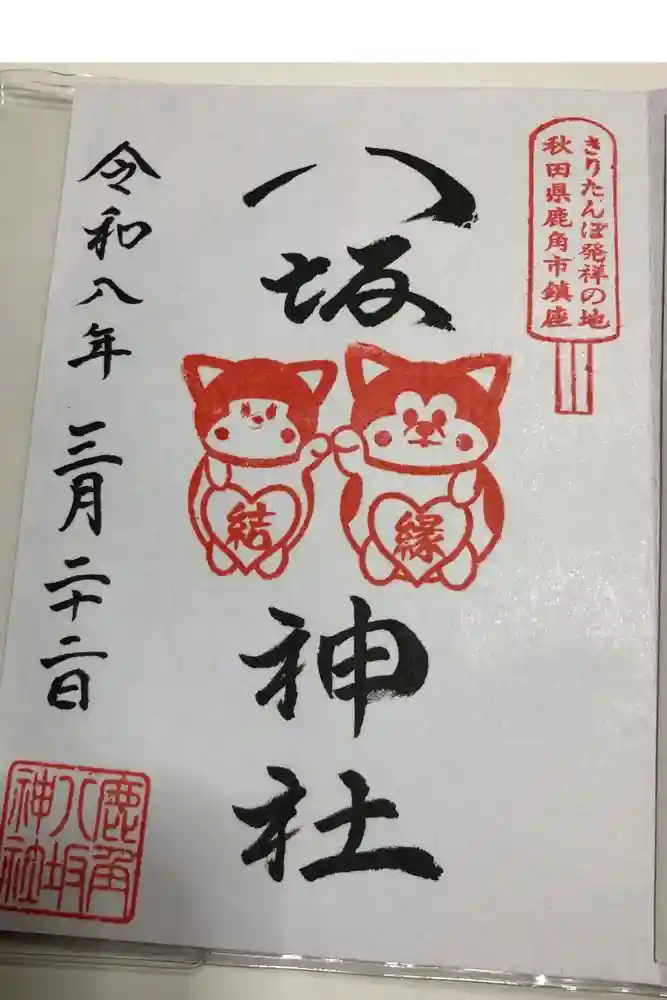 きりたんぽ発祥の地
秋田県鹿角市鎮座
八坂神社
結
縁
令和八年 三月二十二日
鹿角
八坂
神社